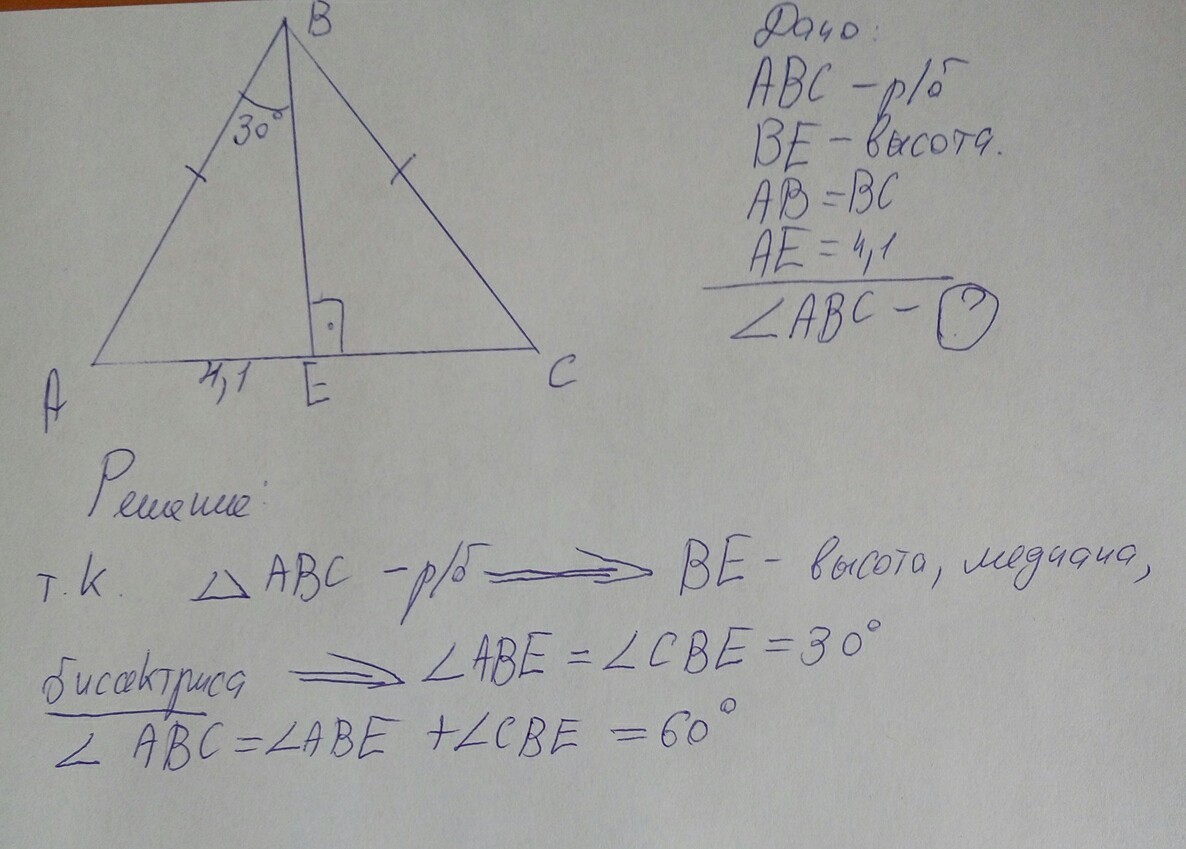 B
30°
A
4,1
E
C
Дано:
ABC – р/б
BE – высота.
AB = BC
AE = 4,1
∠ABC – ?
Решение:
т.к. △ ABC – р/б ⟹ BE – высота, медиана,
биссектриса ⟹ ∠ABE = ∠CBE = 30°
∠ ABC = ∠ABE + ∠CBE = 60°